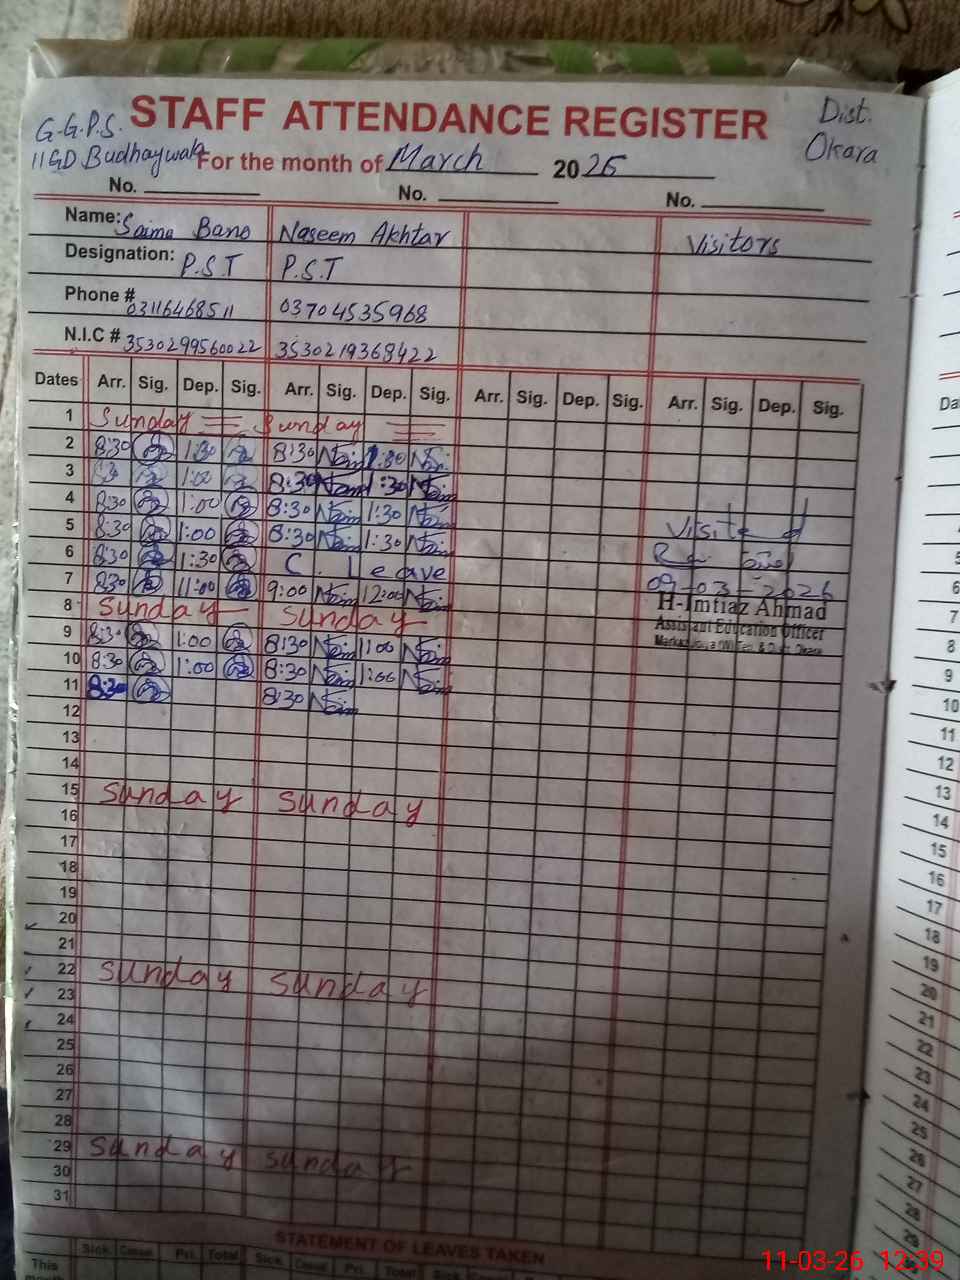 STAFF ATTENDANCE REGISTER
G.G.P.S. Dist.
11GD Budhaywala Okara
For the month of March 2026
No. No. No.
Name: Saima Bano Naseem Akhtar Visitors
Designation: P.S.T P.S.T
Phone # 03116468511 03704535968
N.I.C # 3530299560022 3530219368422
Dates Arr. Sig. Dep. Sig. Arr. Sig. Dep. Sig. Arr. Sig. Dep. Sig. Arr. Sig. Dep. Sig.
1 Sunday Sunday
2 8:30 1:30 8:30 1:30
3 1:00 8:30 1:30
4 8:30 1:00 8:30 1:30
5 8:30 1:00 8:30 1:30 Visited
6 8:30 1:30 C. Leave
7 8:30 11:00 9:00 12:00 09-03-2026
8 Sunday Sunday H-Imtiaz Ahmad
Assistant Education Officer
9 8:30 1:00 8:30 1:00
10 8:30 1:00 8:30 1:00
11 8:30 8:30
12
13
14
15 Sunday Sunday
16
17
18
19
20
21
22 Sunday Sunday
23
24
25
26
27
28
29 Sunday Sunday
30
31
STATEMENT OF LEAVES TAKEN
Sick Casual Pri. Total Sick Casual Pri. Total
This
month
Da
5
6
7
8
9
10
11
12
13
14
15
16
17
18
19
20
21
22
23
24
25
26
27
28
29
11-03-26 12:39